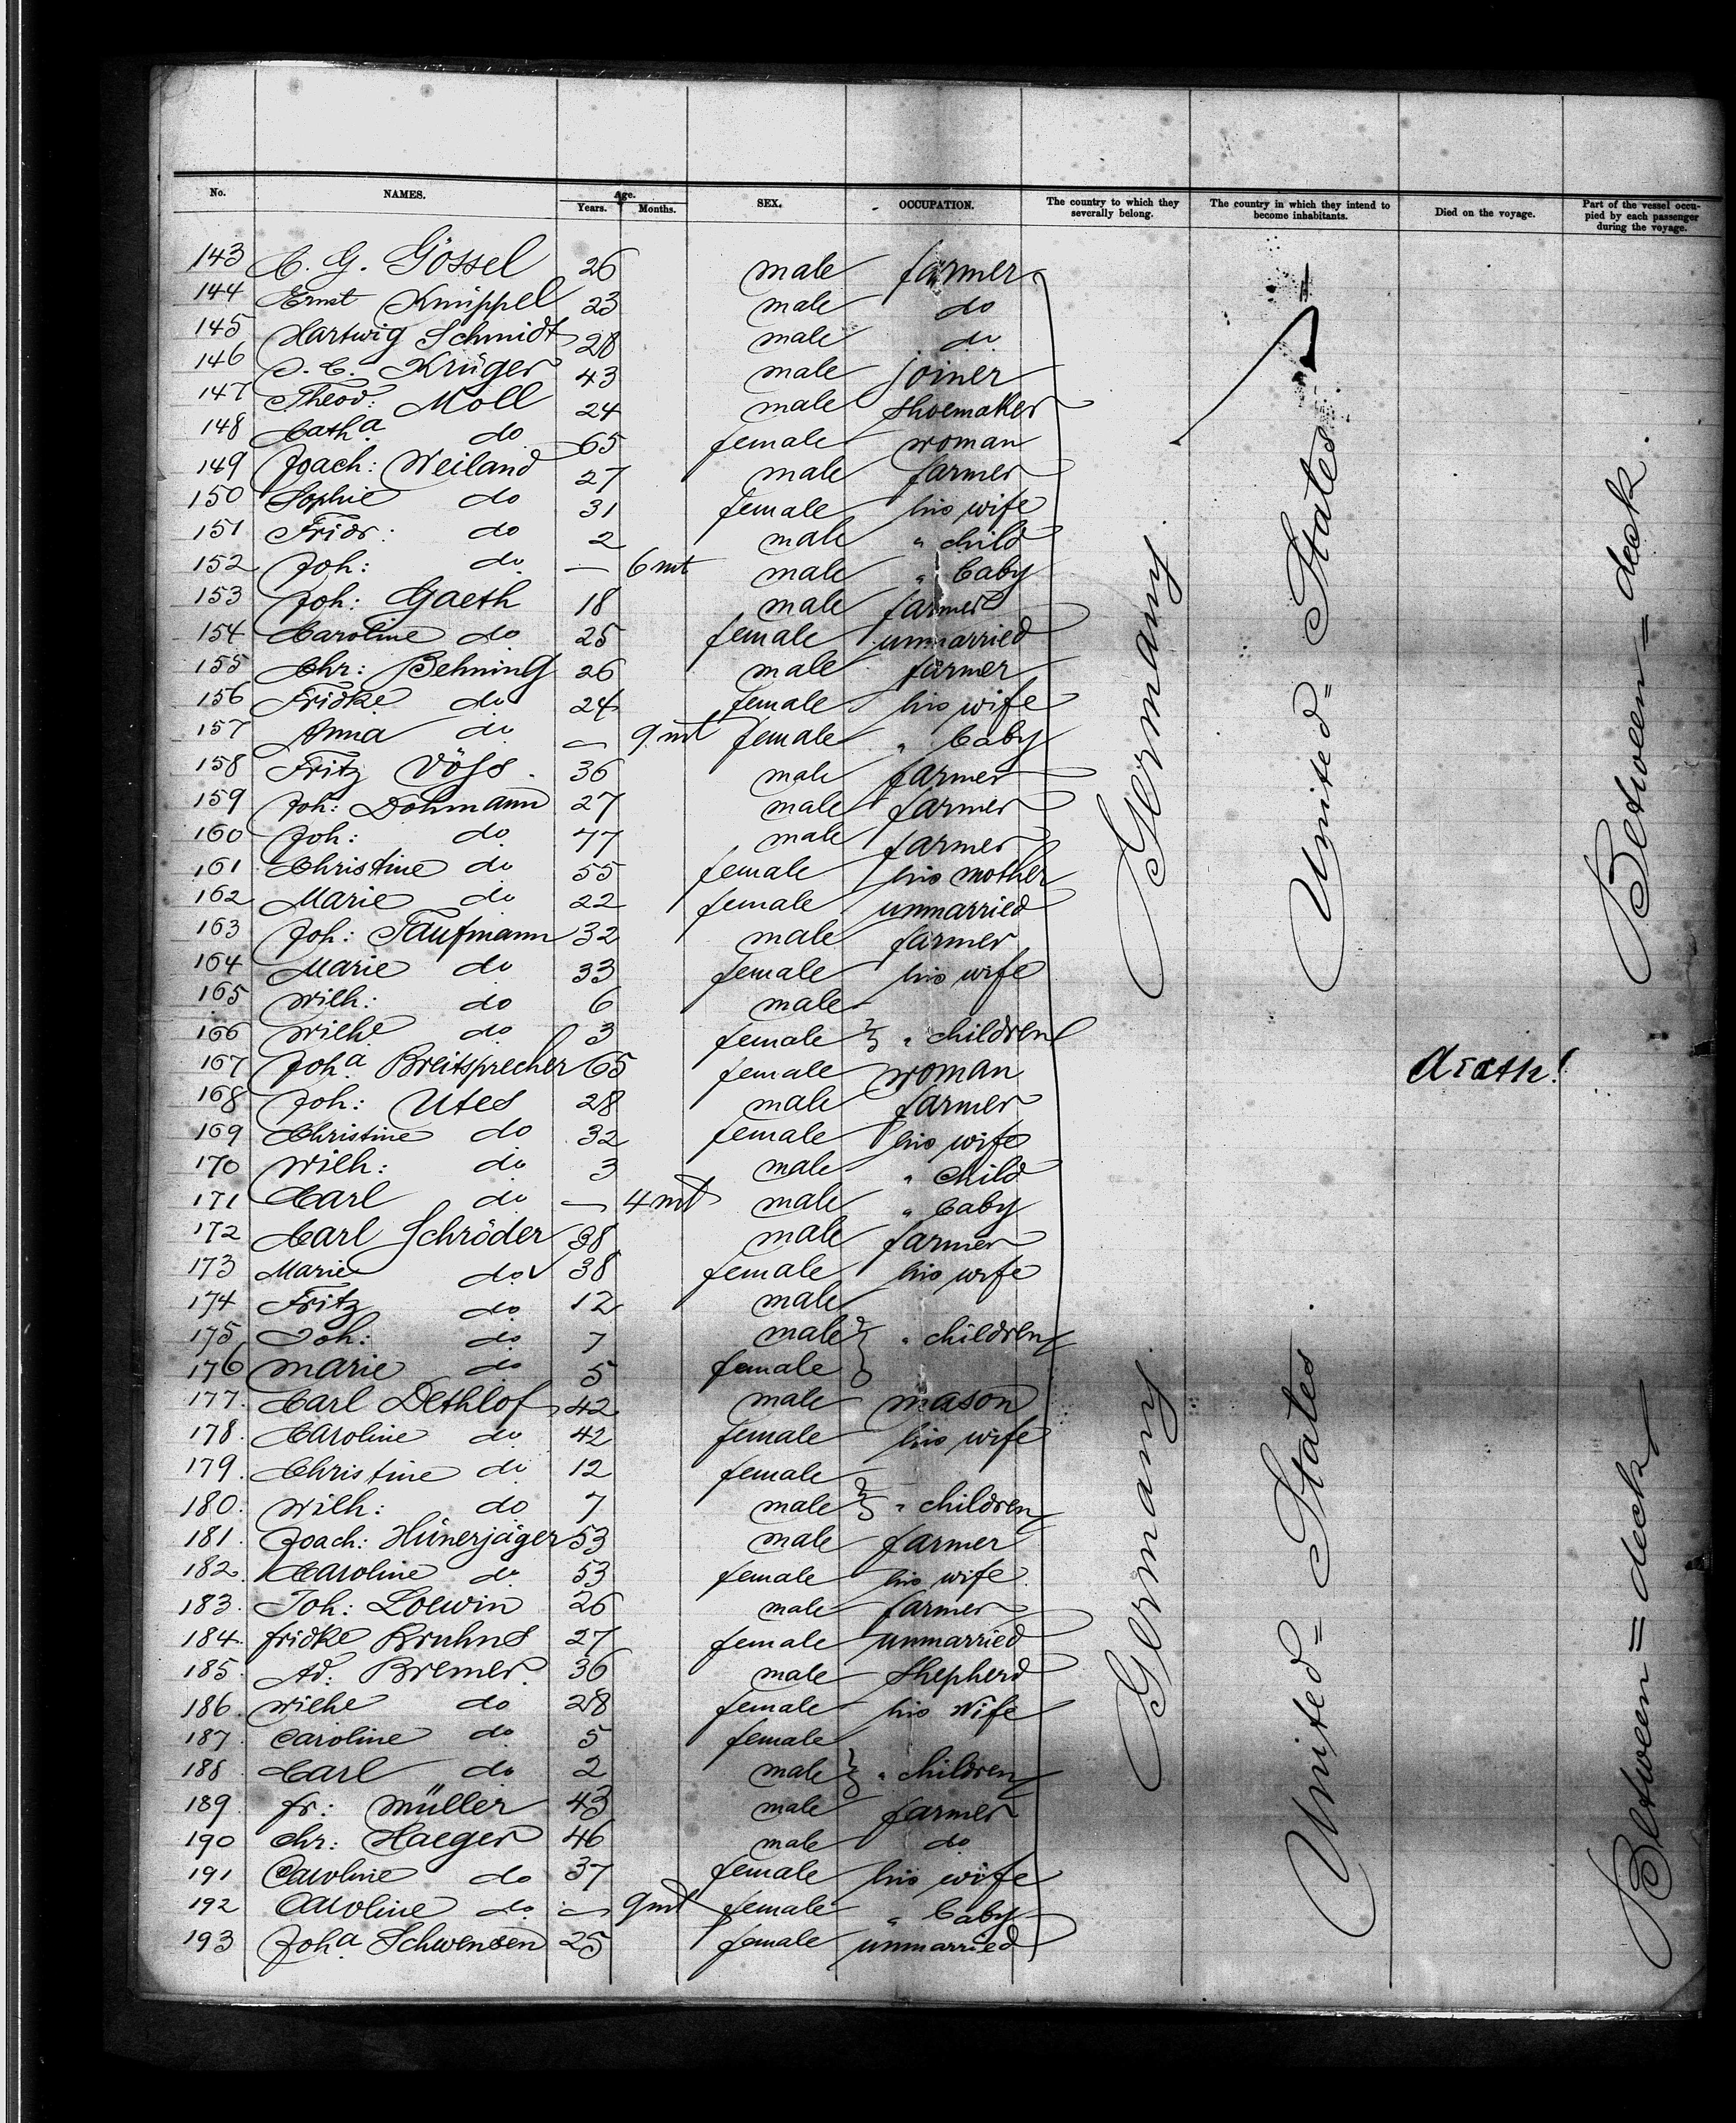 No. NAMES. Age. Years. Months. SEX. OCCUPATION. The country to which they severally belong. The country in which they intend to become inhabitants. Died on the voyage. Part of the vessel occupied by each passenger during the voyage.
143 C. G. Gössel 26 male farmer
144 Ernst Knüppel 23 male do
145 Hartwig Schmidt 28 male do
146 J. C. Krüger 43 male joiner
147 Theod: Moll 24 male Shoemaker
148 Catha do 65 female woman
149 Joach: Weiland 27 male farmer
150 Sophie do 31 female his wife
151 Fridr: do 2 male " child
152 Joh: do — 6 mt male " baby
153 Joh: Gaeth 18 male farmer
154 Caroline do 25 female unmarried
155 Chr: Behning 26 male farmer
156 Fridke do 24 female his wife
157 Anna do — 9 mt female " baby
158 Fritz Vöss 36 male farmer
159 Joh: Dohmann 27 male farmer
160 Joh: do 77 male farmer
161 Christine do 55 female his mother
162 Marie do 22 female unmarried
163 Joh: Taufmann 32 male farmer
164 Marie do 33 female his wife
165 Wilh: do 6 male
166 Wilhe do 3 female " children
167 Joha Breitsprecher 65 female woman death!
168 Joh: Utes 28 male farmer
169 Christine do 32 female his wife
170 Wilh: do 3 male " child
171 Carl do — 4 mt male " baby
172 Carl Schröder 38 male farmer
173 Marie do 38 female his wife
174 Fritz do 12 male
175 Joh: do 7 male " children
176 Marie do 5 female
177. Carl Dethlof 42 male mason
178. Caroline do 42 female his wife
179. Christine do 12 female
180. Wilh: do 7 male " children
181. Joach: Hünerjäger 53 male farmer
182. Caroline do 53 female his wife
183. Joh: Loewin 26 male farmer
184. fridke Bruhns 27 female unmarried
185. Ad: Bremer 36 male Shepherd
186. Wilhe do 28 female his Wife
187. Caroline do 5 female
188. Carl do 2 male " children
189. fr: Müller 43 male farmer
190 Chr: Haeger 46 male do
191 Caroline do 37 female his wife
192 Caroline do — 9 mt female " baby
193 Joha Schwensen 25 female unmarried
Germany.
United= States
Between= deck
Germany.
United= States
Between= deck